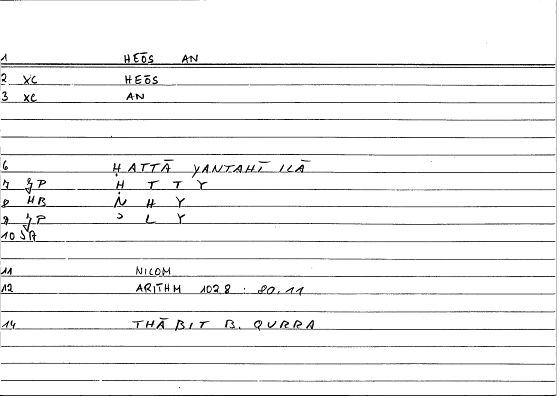 1 HEŌS AN
2 XC HEŌS
3 XC AN
6 ḤATTĀ YANTAHĪ ILĀ
7 ȝP Ḥ T T Y
8 HB N H Y
9 ȝP ʾ L Y
10 SA
11 NICOM
12 ARITHM 102.8 : 80.11
14 THĀBIT B. QURRA